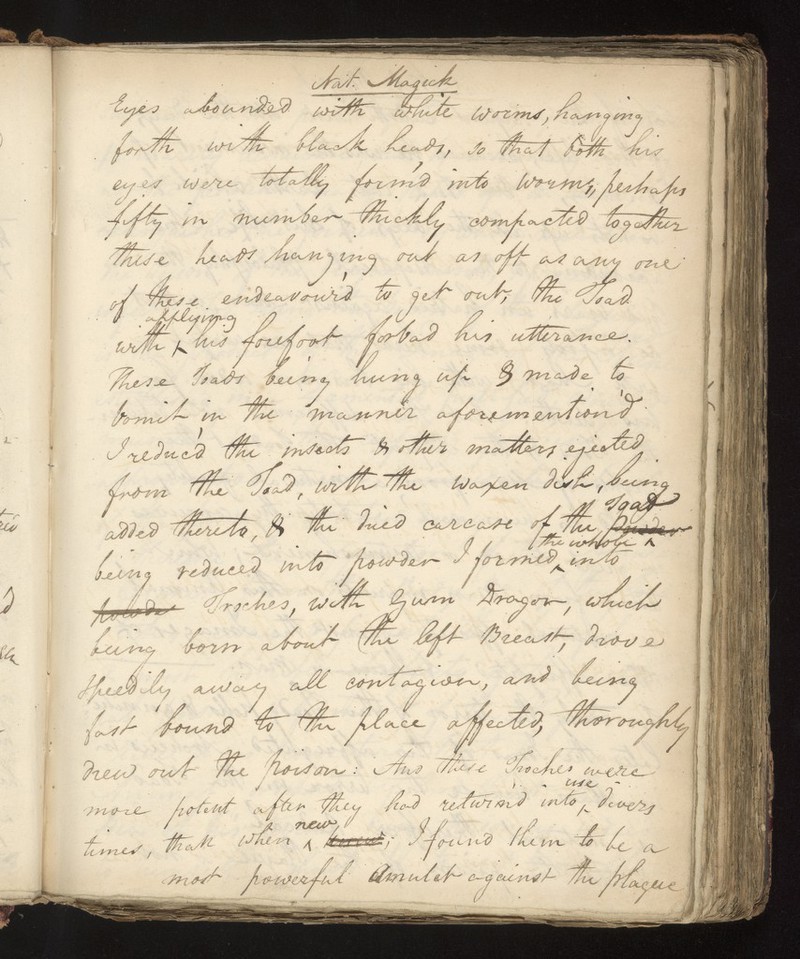 Nat. Magick
Eyes abounded with white worms, hanging
forth with black heads, so that both his
eyes were totally form'd into worms, perhaps
fifty in number thickly compacted together
these heads hanging out as oft as any one
of these endeavour'd to get out, the Toad
applying
with ^ his forefoot forbad his utterance.
These Toads being hung up & made to
vomit in the manner aforemention'd
I reduc'd the insects & other matters ejected
from the Toad, with the waxen dish, being
added thereto, & the dried carcase of the Toad
the whole
being reduced into powder I formed ^ into
powder Troches, with Gum Dragon, which
being born about the left Breast, drove
speedily away all contagion, and being
fast bound to the place affected, thoroughly
drew out the poison: And these Troches were
use
more potent after they had return'd into ^ divers
new
times, than when ^; I found them to be a
most powerful Amulet against the plague